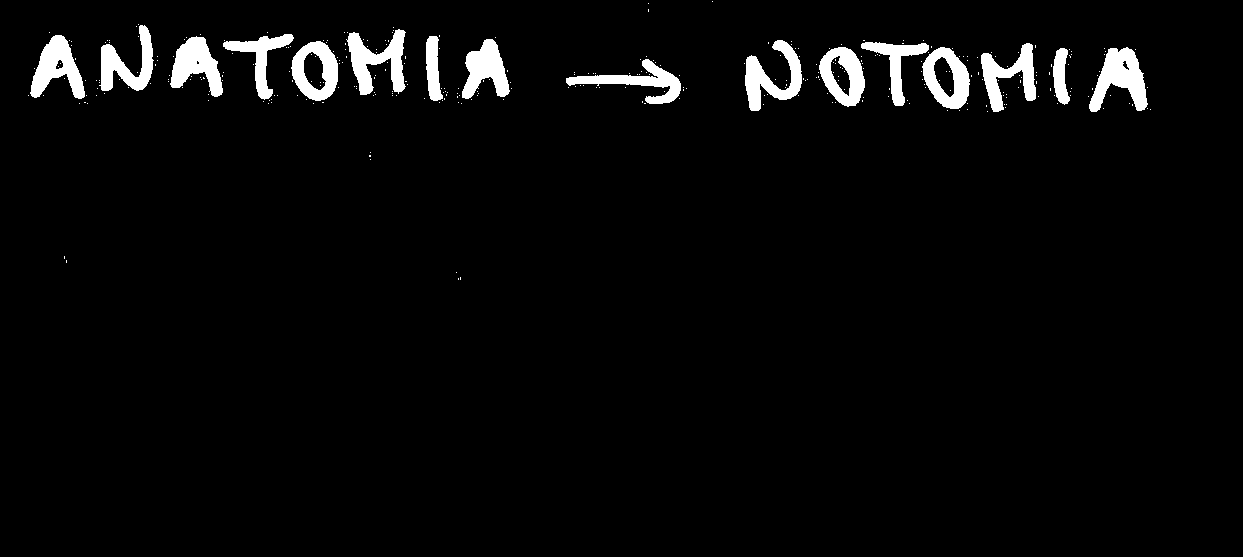 ANATOMIA → NOTOMIA